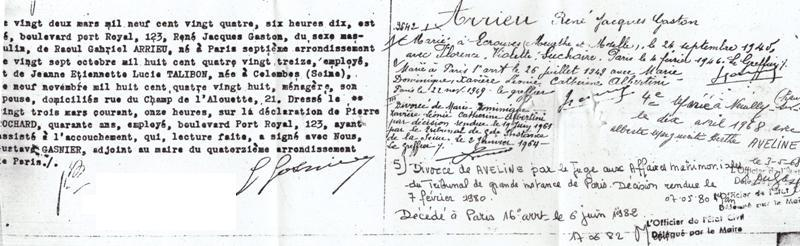 e vingt deux mars mil neuf cent vingt quatre, six heures dix, est
é, boulevard port Royal, 123, René Jacques Gaston, du sexe mas-
ulin, de Raoul Gabriel ARRIEU, né à Paris septième arrondissement
e vingt sept octobre mil huit cent quatre vingt treize, employé,
t de Jeanne Etiennette Lucie TALIBON, née à Colombes (Seine),
e neuf novembre mil huit cent quatre vingt huit, ménagère, son
pouse, domiciliés rue du Champ de l'Alouette, 21. Dressé le
vingt trois mars courant, onze heures, sur la déclaration de Pierre
OCHARD, quarante ans, employé, boulevard Port Royal, 123, ayant
assisté à l'accouchement, qui, lecture faite, a signé avec Nous,
ustave GASNIER, adjoint au maire du quatorzième arrondissement
e Paris./.
Arrieu René Jacques Gaston
Marié à Ecrouves (Meurthe et Moselle), le 24 septembre 1940,
avec Florence Violette Suchaire. Paris le 4 février 1946. Le Greffier
Marié à Paris 1er arrt le 28 juillet 1949 avec Marie
Dominique Larrère Léonie Catherine Albertini
Paris le 22 1949. le greffier
Divorcé de Marie Dominique
Larrère Léonie Catherine Albertini
par décision rendue le 19 juin 1961
par le Tribunal de gde Instance
de la Seine. le 2 Janvier 1964
Le greffier
4e Marié à Neuilly
le dix avril 1968 avec
Alberte Marguerite
AVELINE
le 3-5-68
5) Divorcé de AVELINE par le Juge aux Affaires matrimoniales
du Tribunal de grande instance de Paris. Décision rendue le
7 février 1980.
07.05.80
L'Officier de l'Etat Civil
Délégué par le Maire
Décédé à Paris 16e arrt le 6 juin 1982
17 06 82
L'Officier de l'Etat Civil
Délégué par le Maire